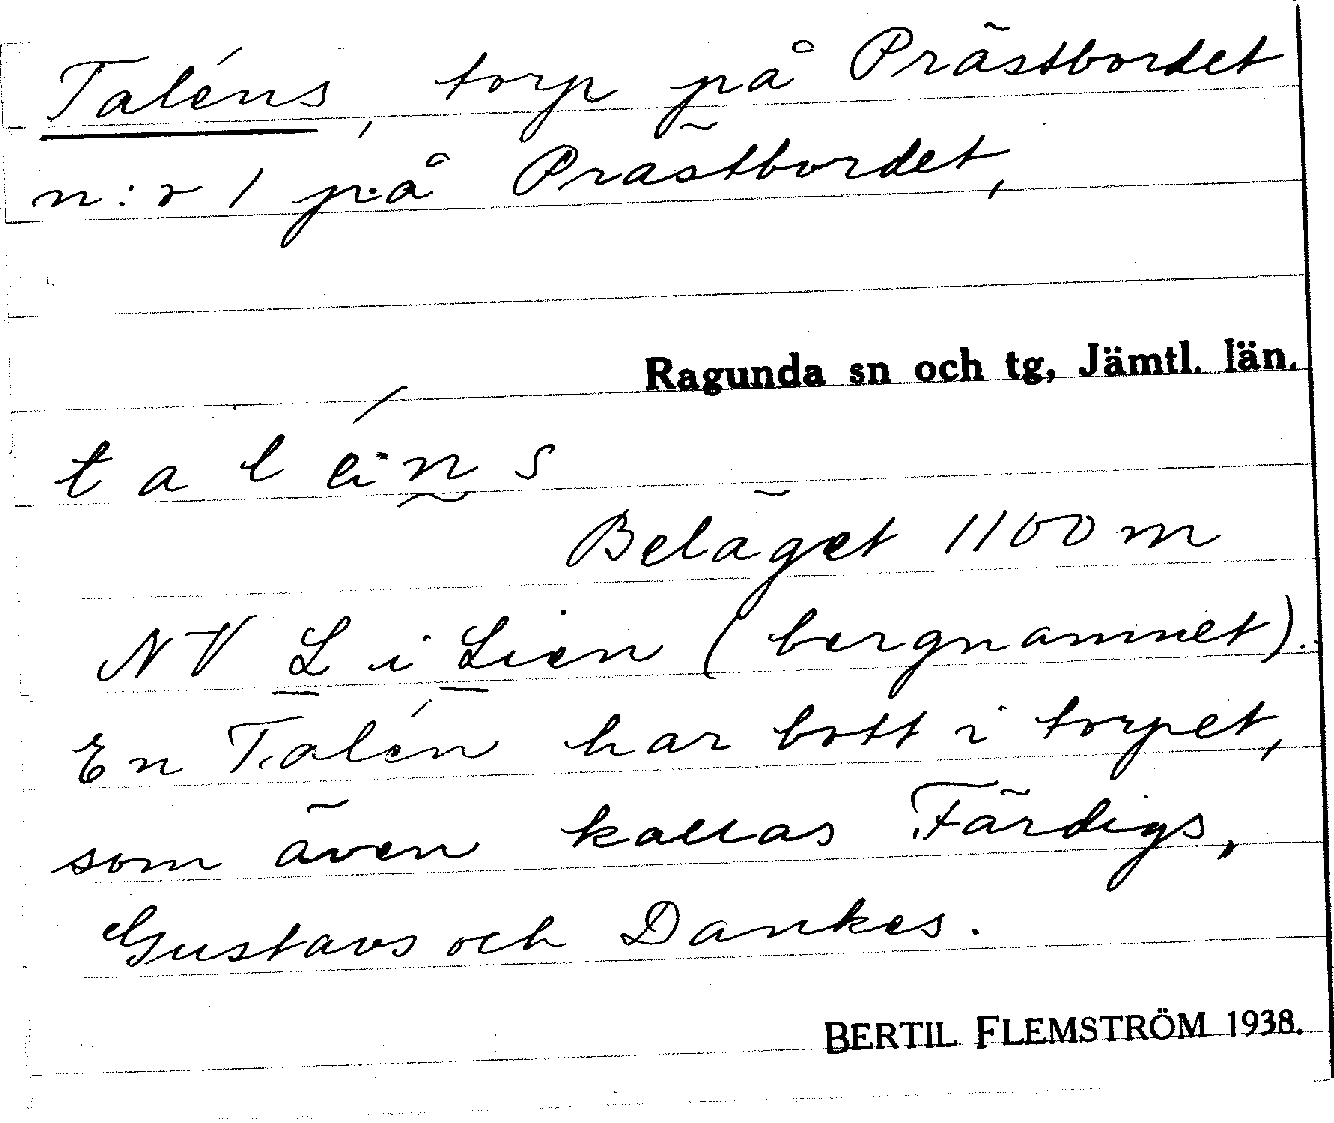 Taléns, torp på Prästbordet
n:r 1 på Prästbordet,
Ragunda sn och tg, Jämtl. län.
Beläget 1100 m
NV L i Lien (bergnamnet).
En Talén har bott i torpet,
som även kallas Färdigs,
Gustavs och Dankes.
BERTIL FLEMSTRÖM 1938.